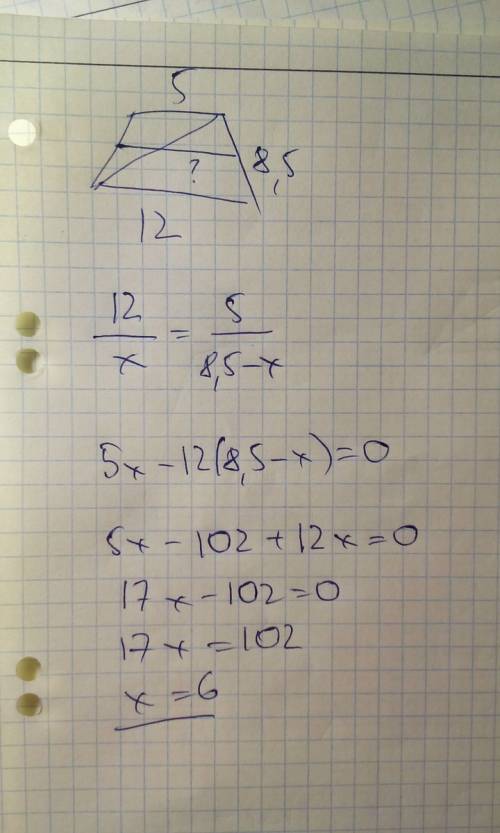 5
? 8,5
12
12/x = 5/(8,5-x)
5x - 12(8,5-x)=0
5x - 102 + 12x = 0
17x - 102 = 0
17x = 102
x = 6